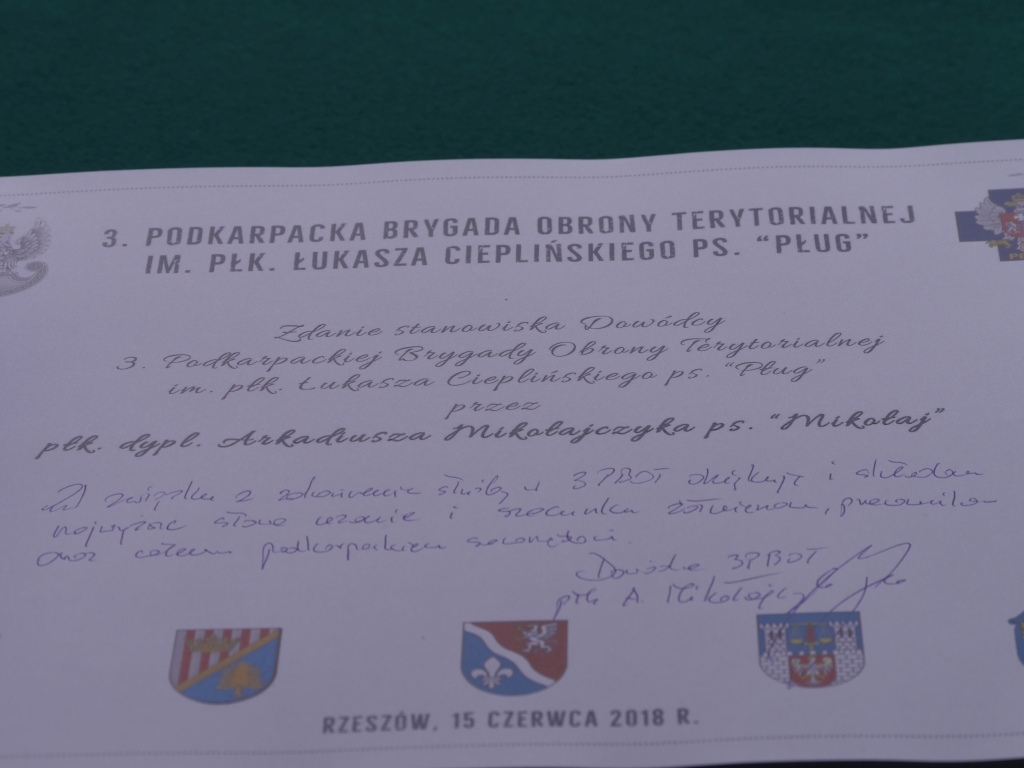 3. PODKARPACKA BRYGADA OBRONY TERYTORIALNEJ
IM. PŁK. ŁUKASZA CIEPLIŃSKIEGO PS. "PŁUG"
Zdanie stanowiska Dowódcy
3. Podkarpackiej Brygady Obrony Terytorialnej
im. płk. Łukasza Cieplińskiego ps. "Pług"
przez
płk. dypl. Arkadiusza Mikołajczyka ps. "Mikołaj"
W związku z zakończeniem służby w 3 PBOT dziękuję i składam
najwyższe słowa uznania i szacunku żołnierzom, pracownikom
oraz całemu podkarpackiemu
Dowódca 3PBOT
płk A. Mikołajczyk
RZESZÓW, 15 CZERWCA 2018 R.